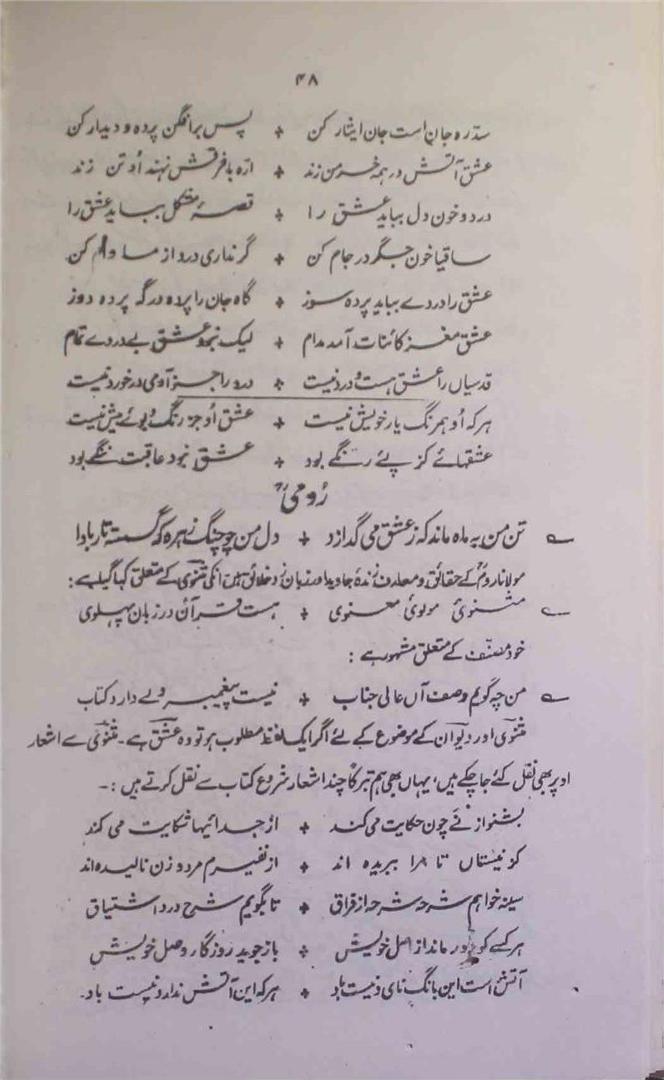 ۴۸
سدّرہ جان است جان ایثار کن + پس برافگن پردہ و دیدار کن
عشق آتش در ہمہ خرمن زند + ارّہ بافرقش نہند او تن زند
درد و خون دل بباید عشق را + قصۂ مشکل بباید عشق را
ساقیا خون جگر در جام کن + گر نداری درد از ما وام کن
عشق را دردے بباید پردہ سوز + گاہ جان را پردہ در گہ پردہ دوز
عشق مغز کائنات آمد مدام + لیک نبود عشق بے دردے تمام
قدسیاں را عشق ہست و درد نیست + درد را جز آدمی در خورد نیست
ہر کہ اُو ہمرنگ یار خویش نیست + عشق اُو جز رنگ و بوئے بیش نیست
عشقہائے کز پئے رنگے بود + عشق نبود عاقبت ننگے بود
رُومیؒ
تن من بہ ماہ ماند کہ ز عشق می گدازد + دل من چو چنگ زہرہ کہ گسستہ تار بادا
مولانا رومؒ کے حقائق و معارف زندۂ جاوید اور زبان زد خلائق ہیں انکی مثنوی کے متعلق کہا گیا ہے :
مثنویٔ مولویٔ معنوی + ہست قرآن در زبان پہلوی
خود مصنّف کے متعلق مشہور ہے :
من چہ گویم وصف آں عالی جناب + نیست پیغمبر ولے دارد کتاب
مثنوی اور دیوان کے موضوع کے لئے اگر ایک لفظ مطلوب ہو تو وہ عشق ہے ۔ مثنوی سے اشعار
اوپر بھی نقل کئے جا چکے ہیں، یہاں بھی ہم تبرکاً چند اشعار شروع کتاب سے نقل کرتے ہیں :۔
بشنو از نَے چون حکایت می کند + از جدائیہا شکایت می کند
کز نیستاں تا مرا ببریدہ اند + از نفیرم مرد و زن نالیدہ اند
سینہ خواہم شرحہ شرحہ از فراق + تا بگویم شرح درد اشتیاق
ہر کسے کو دور ماند از اصل خویش + باز جوید روزگار وصل خویش
آتش است این بانگ نای و نیست باد + ہر کہ این آتش ندارد نیست باد ۔